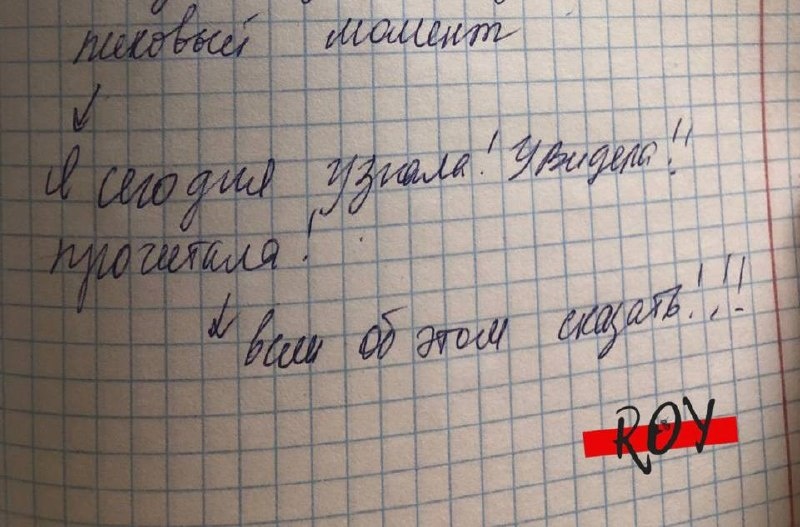 пиковый момент
Я сегодня узнала! Увидела!!
прочитала!
всем об этом сказать!!!
ROY